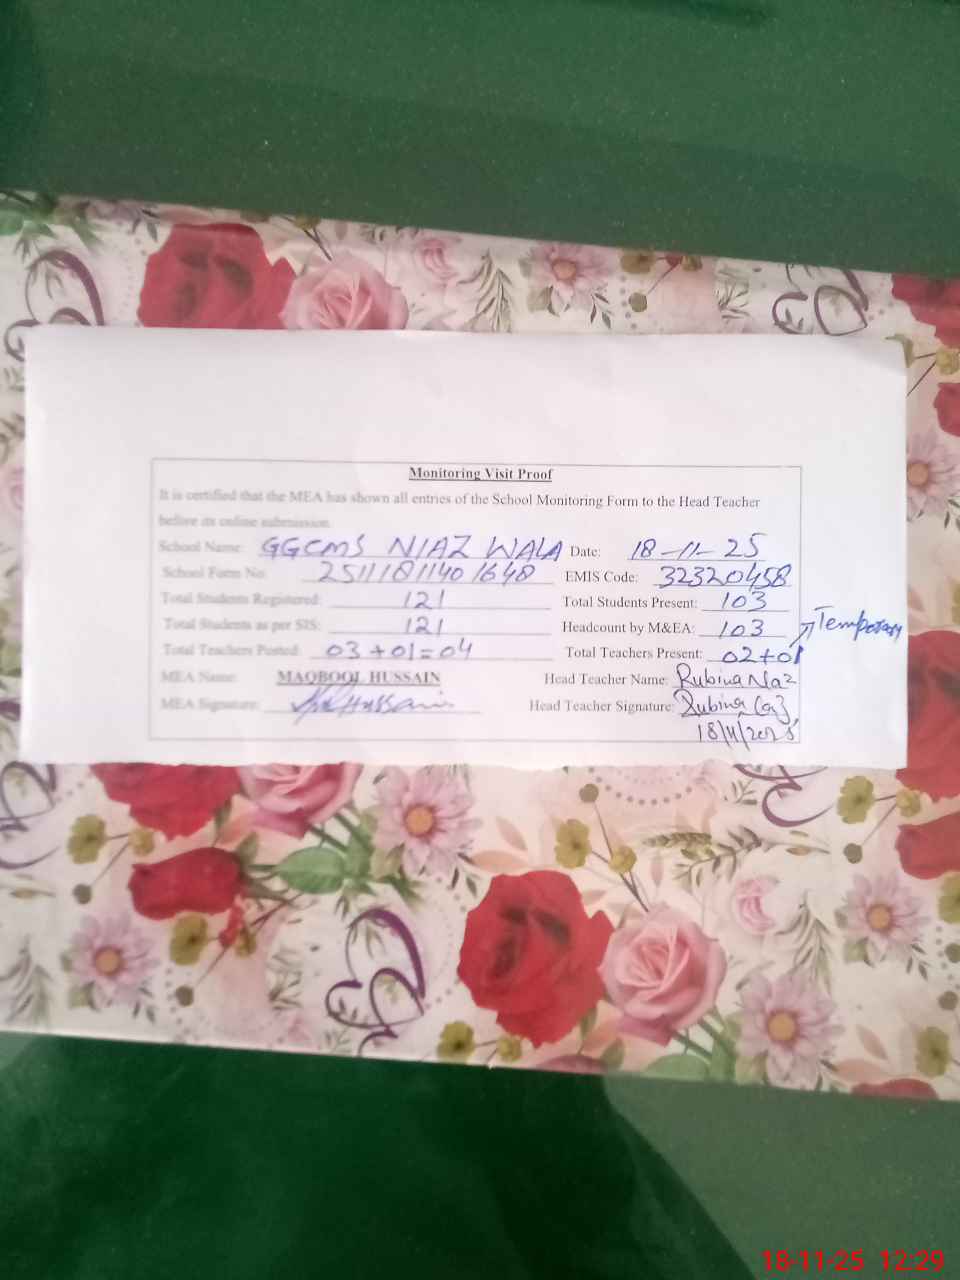 Monitoring Visit Proof
It is certified that the MEA has shown all entries of the School Monitoring Form to the Head Teacher
before its online submission.
School Name: GGCMS NIAZ WALA Date: 18-11-25
School Form No: 2511181140 1648 EMIS Code: 32320458
Total Students Registered: 121 Total Students Present: 103
Total Students as per SIS: 121 Headcount by M&EA: 103 Temporary
Total Teachers Posted: 03+01=04 Total Teachers Present: 02+01
MEA Name: MAQBOOL HUSSAIN Head Teacher Name: Rubina Naz
MEA Signature: Hussain Head Teacher Signature: Rubina
18/11/2025
18-11-25 12:29